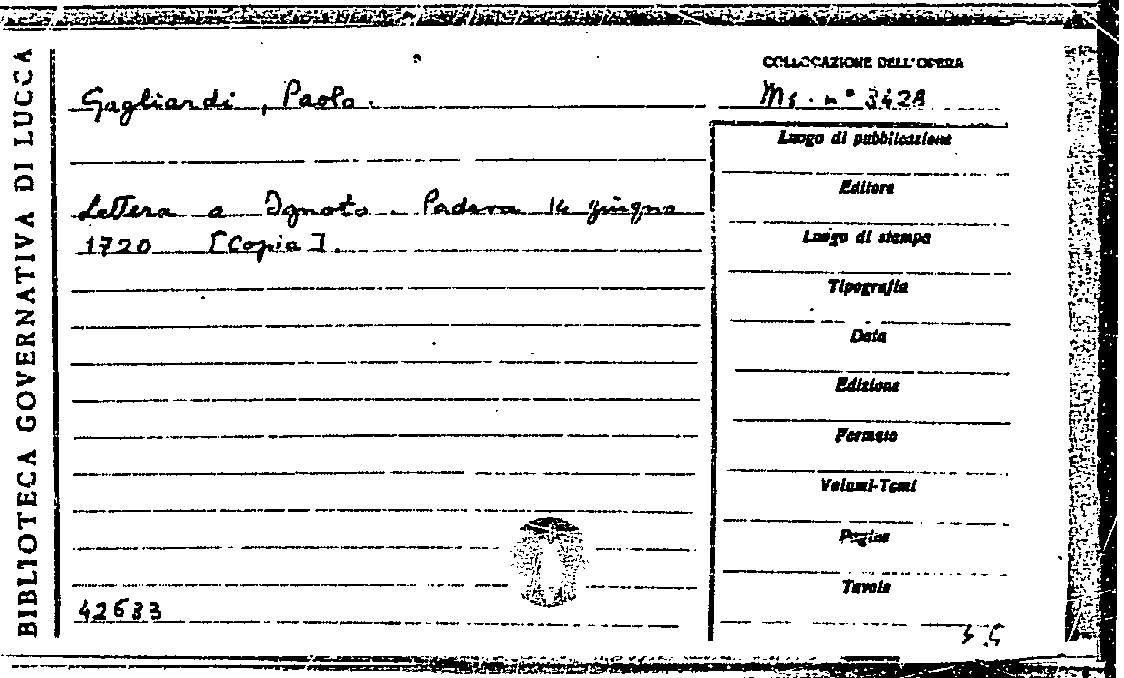 BIBLIOTECA GOVERNATIVA DI LUCCA
Gagliardi, Paolo.
Lettera a Ignoto - Padova 14 giugno
1720 [Copia].
42633
COLLOCAZIONE DELL'OPERA
Ms. n° 3428
Luogo di pubblicazione
Editore
Luogo di stampa
Tipografia
Data
Edizione
Formato
Volumi-Tomi
Pagine
Tavole